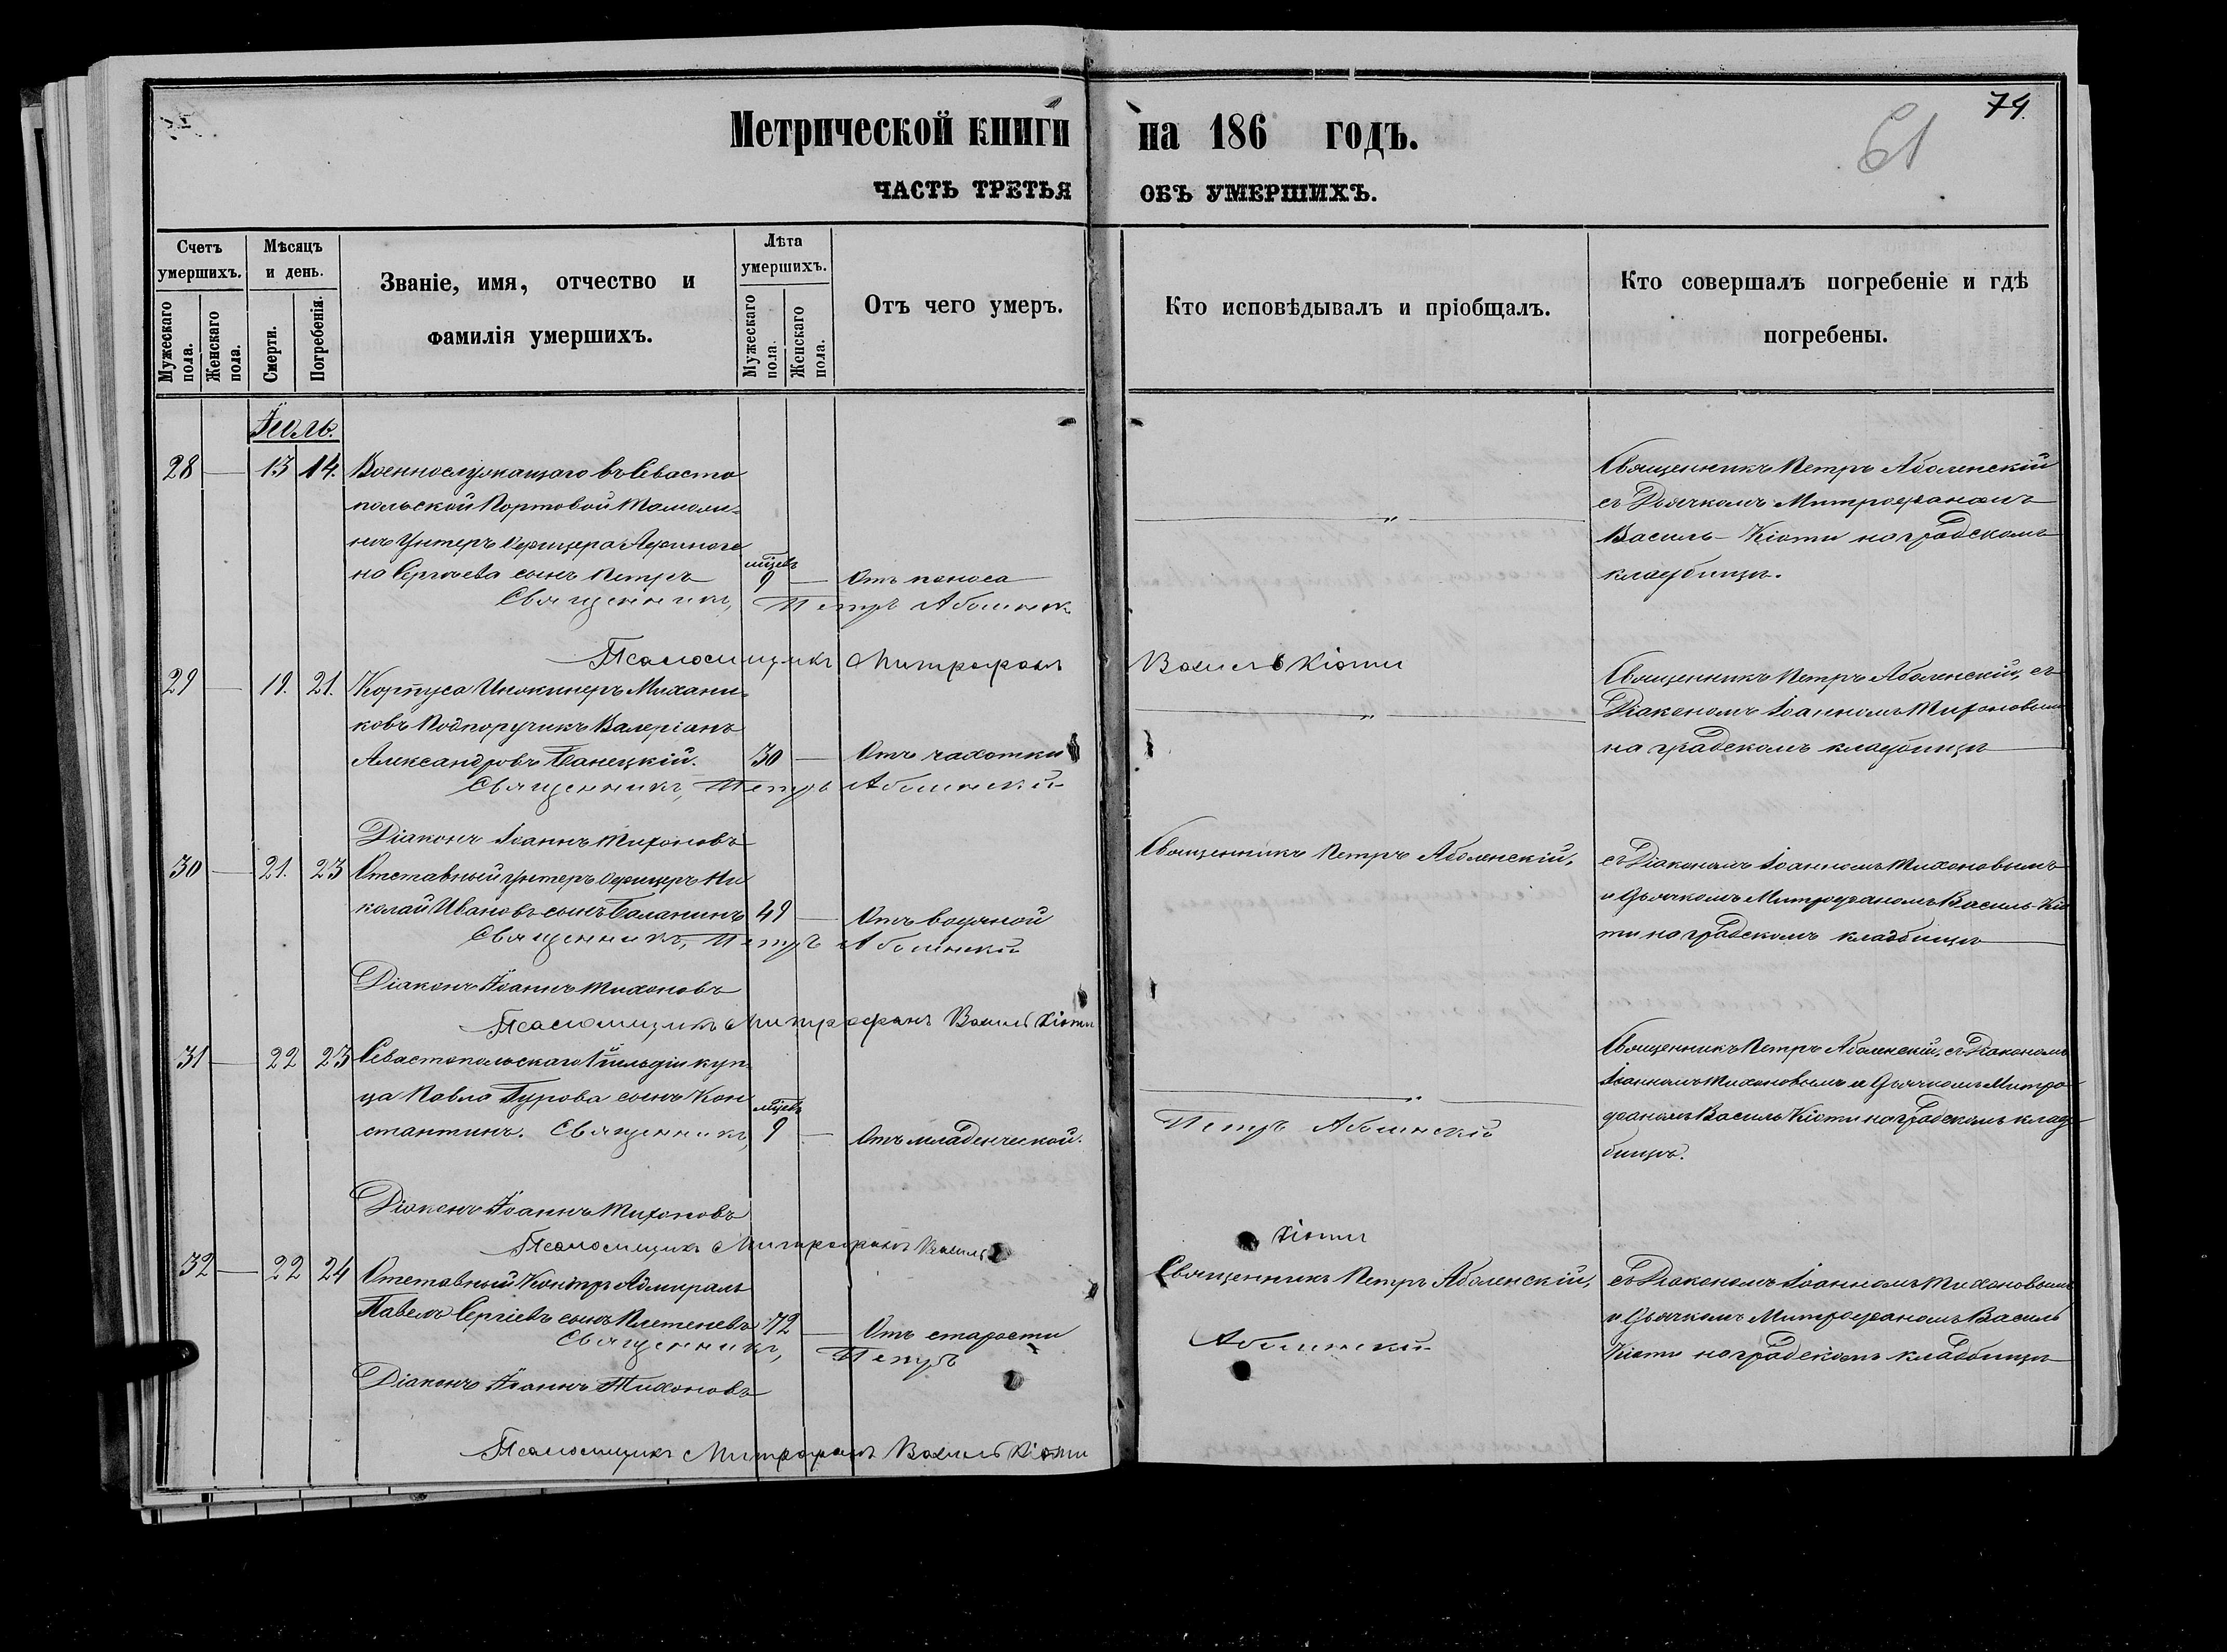 74.
61
Метрической книги на 186 годъ.
ЧАСТЬ ТРЕТЬЯ ОБЪ УМЕРШИХЪ.
Счетъ умершихъ.
Мужескаго пола.
Женскаго пола.
Мѣсяцъ и день.
Смерти.
Погребенія.
Званіе, имя, отчество и
фамилія умершихъ.
Лѣта умершихъ.
Мужескаго пола.
Женскаго пола.
Отъ чего умеръ.
Кто исповѣдывалъ и пріобщалъ.
Кто совершалъ погребеніе и гдѣ
погребены.
Іюль.
28 — 13 14. Военнослужащаго въ Севасто
польской Портовой Таможи-
нѣ Унтеръ Офицера Афиноге
на Сергѣева сынъ Петръ
мѣсяцъ
9 — Отъ поноса
Священникъ Петръ Аболенскій
съ Дьячкомъ Митрофаномъ
Василь-Кіоти на градскомъ
кладбищѣ.
Священникъ, Петръ Аболенск
Псаломщикъ Митрофанъ Василь Кіоти
29 — 19. 21. Корпуса Инжинеръ Механи-
ковъ Подпоручикъ Валеріанъ
Александровъ Банецкій. 30 — Отъ чахотки
Священникъ Петръ Аболенскій, съ
Діакономъ Іоанномъ Тихоновымъ
на градскомъ кладбищѣ
Священникъ, Петръ Аболенскій
Діаконъ Іоаннъ Тихоновъ
30 — 21. 23 Отставный Унтеръ Офицеръ Ни
колай Ивановъ сынъ Баланинъ 49 — Отъ водяной
Священникъ Петръ Аболенскій,
съ Діакономъ Іоанномъ Тихоновымъ
и Дьячкомъ Митрофаномъ Василь-Кіо
ти на градскомъ кладбищѣ
Священникъ, Петръ Аболенскій
Діаконъ Іоаннъ Тихоновъ
Псаломщикъ Митрофанъ Василь Кіоти
31 — 22 23 Севастопольскаго 1й гильдіи куп-
ца Павла Гурова сынъ Кон
стантинъ.
мѣсяцъ
9 — Отъ младенческой.
Священникъ Петръ Аболенскій, съ Діакономъ
Іоанномъ Тихоновымъ и Дьячкомъ Митро-
фаномъ Василь Кіоти на градскомъ клад-
бищѣ.
Священникъ, Петръ Аболенскій
Діаконъ Іоаннъ Тихоновъ
Псаломщикъ Митрофанъ Василь Кіоти
32 — 22 24 Отставный Контръ Адмиралъ
Павелъ Сергіевъ сынъ Плетеневъ 72 — Отъ старости
Священникъ Петръ Аболенскій,
съ Діакономъ Іоанномъ Тихоновымъ
и Дьячкомъ Митрофаномъ Василь
Кіоти на градскомъ кладбищѣ
Священникъ, Петръ Аболенскій
Діаконъ Іоаннъ Тихоновъ
Псаломщикъ Митрофанъ Василь Кіоти